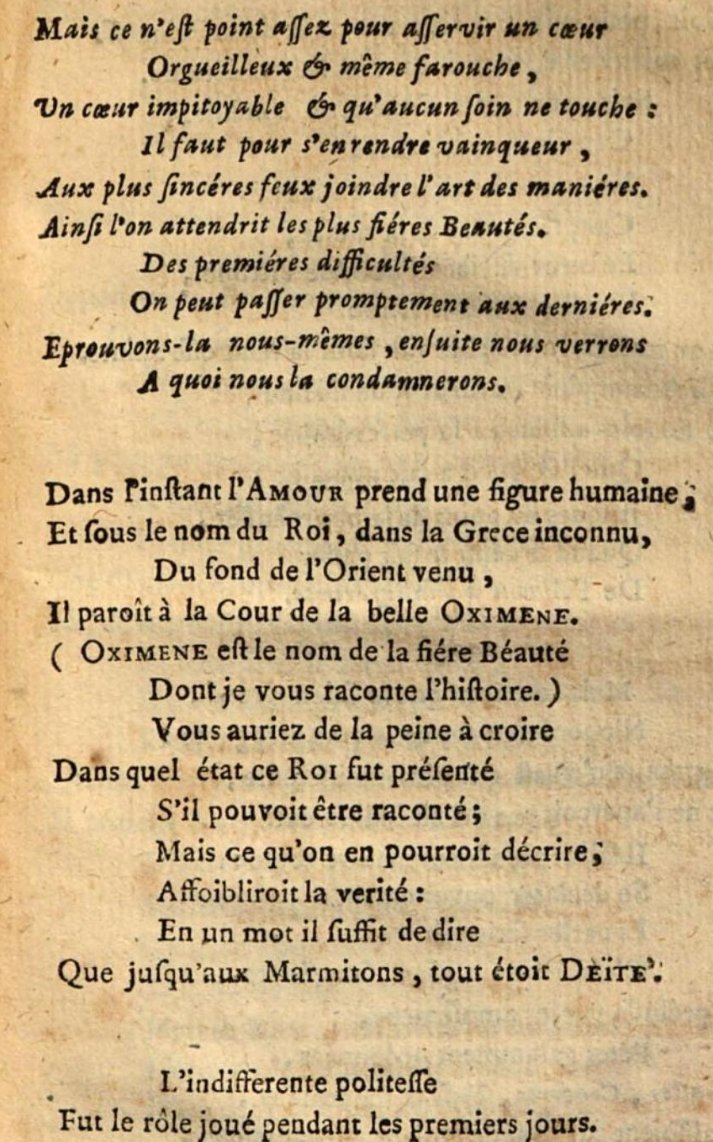 Mais ce n'eſt point aſſez pour aſſervir un cœur
Orgueilleux & même farouche,
Un cœur impitoyable & qu'aucun ſoin ne touche :
Il faut pour s'en rendre vainqueur,
Aux plus ſincéres feux joindre l'art des maniéres.
Ainſi l'on attendrit les plus fiéres Beautés.
Des premiéres difficultés
On peut paſſer promptement aux derniéres.
Eprouvons-la nous-mêmes, enſuite nous verrons
A quoi nous la condamnerons.
Dans l'inſtant l'AMOUR prend une figure humaine;
Et ſous le nom du Roi, dans la Grece inconnu,
Du fond de l'Orient venu,
Il paroît à la Cour de la belle OXIMENE.
( OXIMENE eſt le nom de la fiére Béauté
Dont je vous raconte l'hiſtoire. )
Vous auriez de la peine à croire
Dans quel état ce ROI fut préſenté
S'il pouvoit être raconté;
Mais ce qu'on en pourroit décrire,
Affoibliroit la verité :
En un mot il ſuffit de dire
Que juſqu'aux Marmitons, tout étoit DEÏTE'.
L'indifferente politeſſe
Fut le rôle joué pendant les premiers jours.